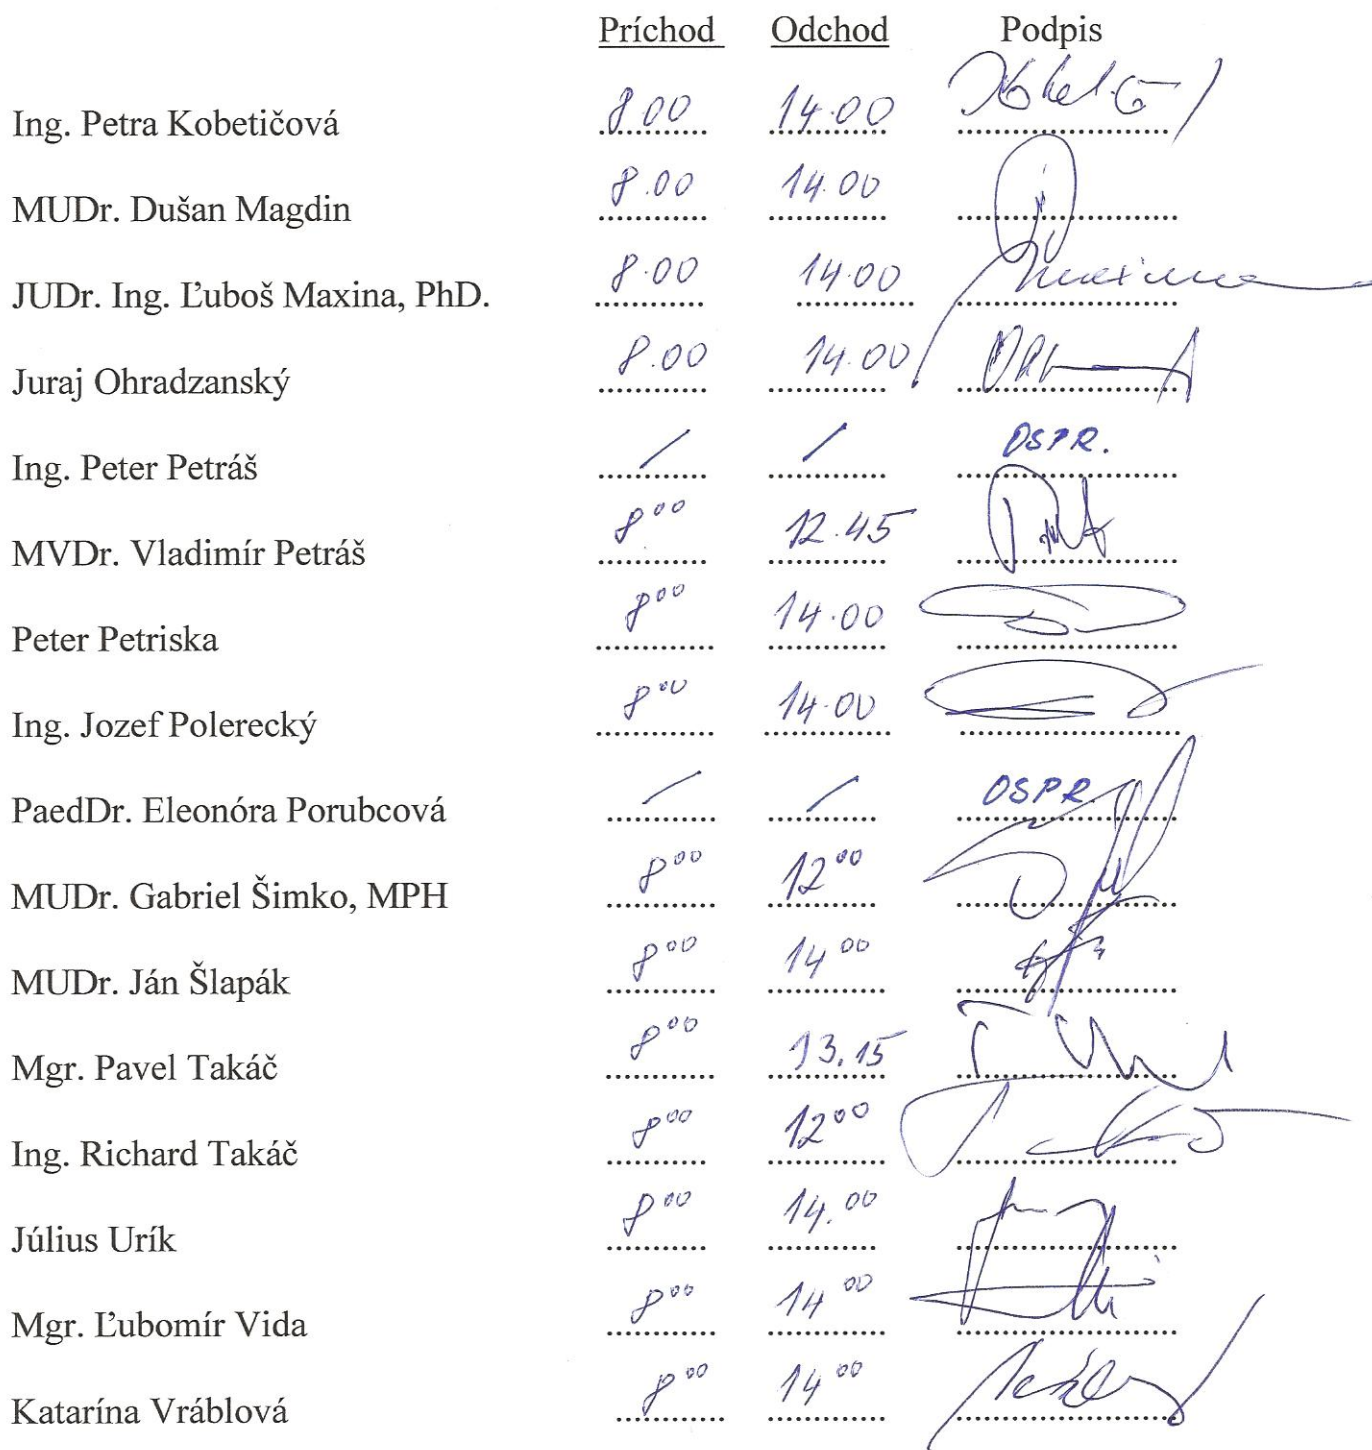 Príchod Odchod Podpis
Ing. Petra Kobetičová 8.00 14.00
MUDr. Dušan Magdin 8.00 14.00
JUDr. Ing. Ľuboš Maxina, PhD. 8.00 14.00 Maxina
Juraj Ohradzanský 8.00 14.00
Ing. Peter Petráš / / OSPR.
MVDr. Vladimír Petráš 8⁰⁰ 12.45
Peter Petriska 8⁰⁰ 14.00
Ing. Jozef Polerecký 8⁰⁰ 14.00
PaedDr. Eleonóra Porubcová / / OSPR.
MUDr. Gabriel Šimko, MPH 8⁰⁰ 12⁰⁰
MUDr. Ján Šlapák 8⁰⁰ 14⁰⁰
Mgr. Pavel Takáč 8⁰⁰ 13.15
Ing. Richard Takáč 8⁰⁰ 12⁰⁰
Július Urík 8⁰⁰ 14.⁰⁰
Mgr. Ľubomír Vida 8⁰⁰ 14⁰⁰
Katarína Vráblová 8⁰⁰ 14⁰⁰